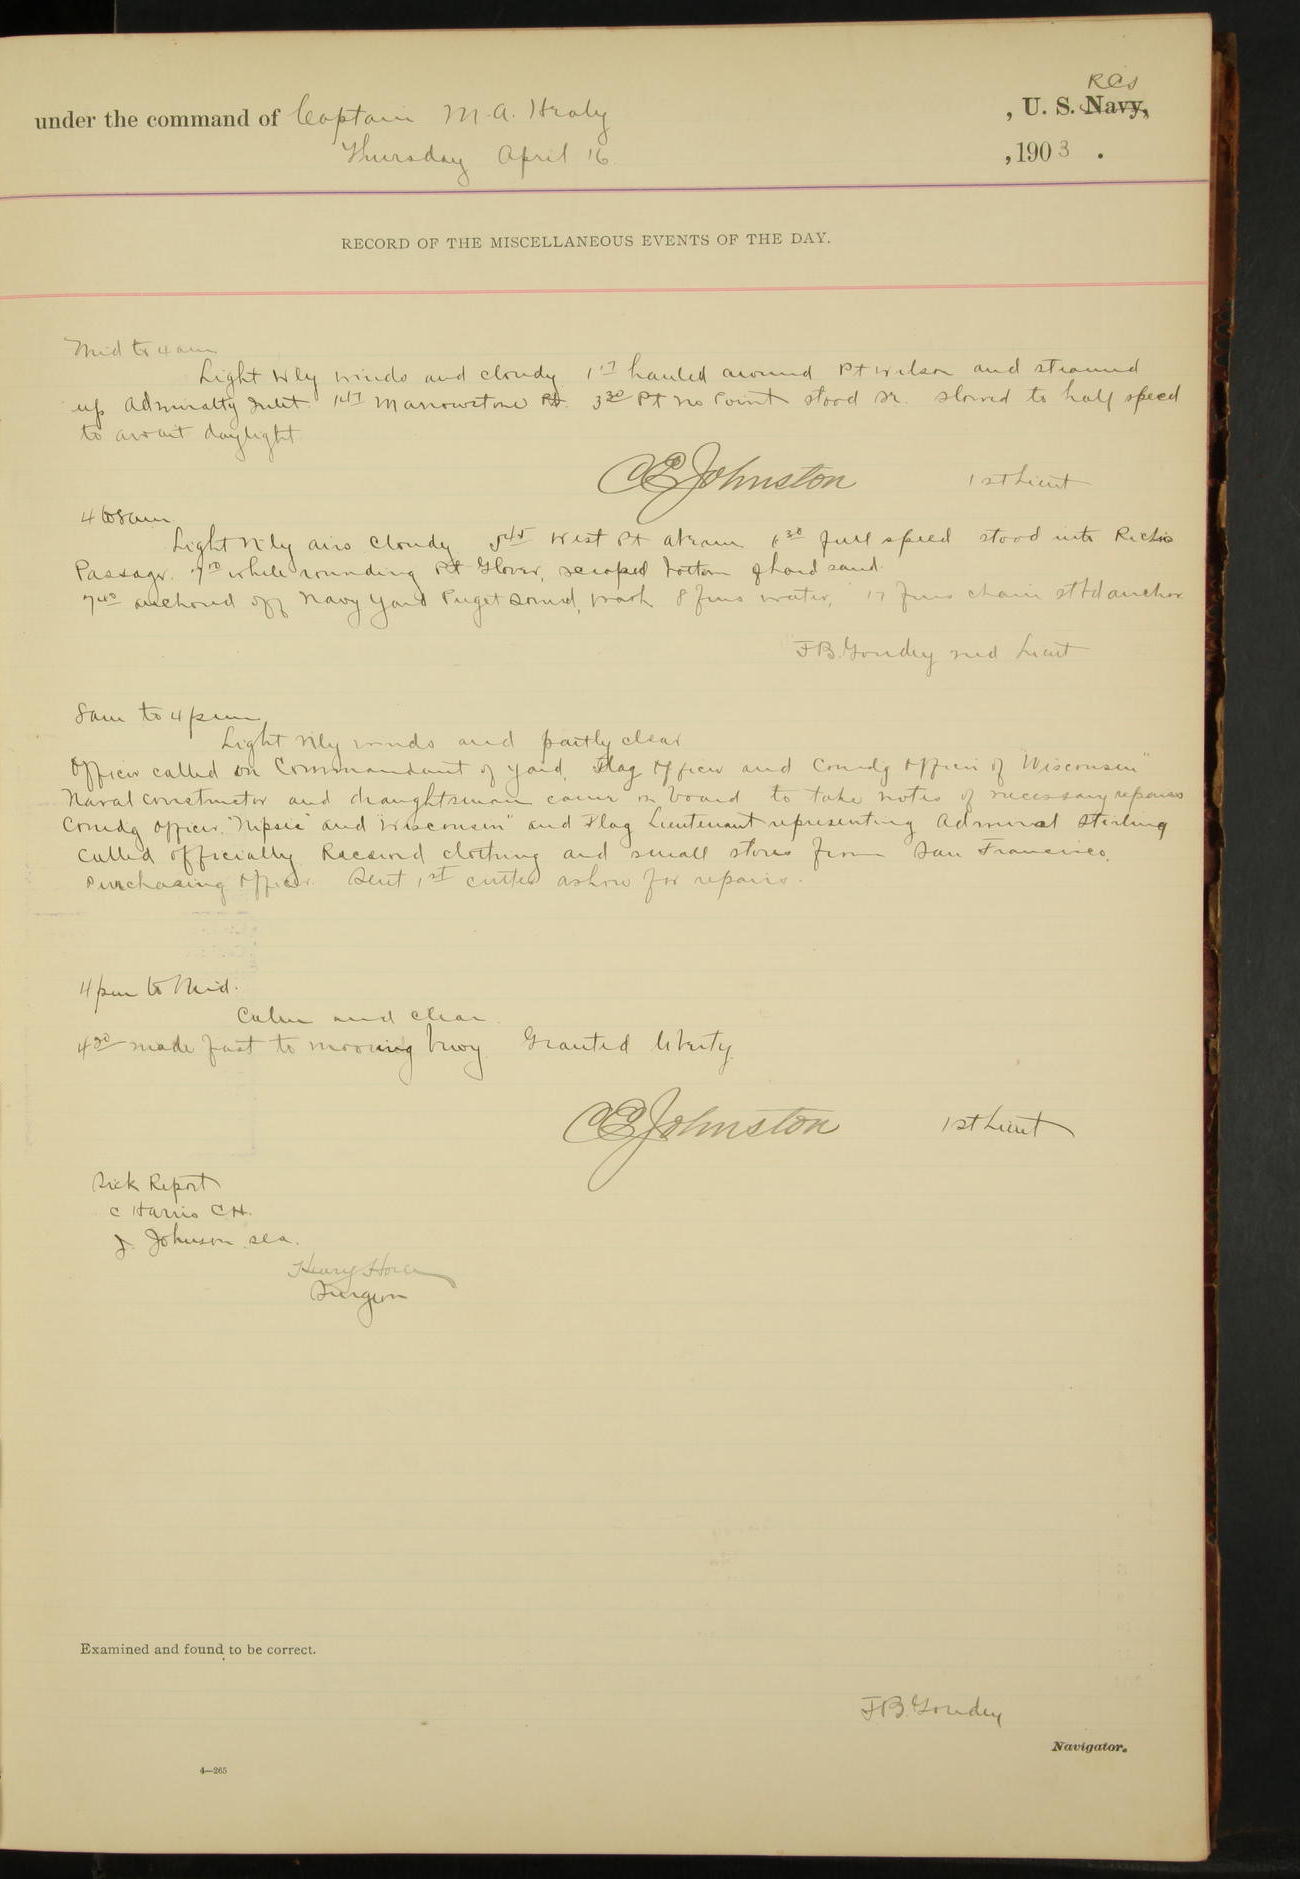 RCS
under the command of Captain M. A. Healy , U. S. Navy,
Thursday April 16 , 1903 .
RECORD OF THE MISCELLANEOUS EVENTS OF THE DAY.
Mid to 4 am
Light Wly winds and cloudy hauled around Pt Wilson and steamed
up Admiralty Inlet Marrowstone Pt. 3 30 Pt No Point stood Sd. slowed to half speed
to await daylight
C E Johnston 1st Lieut
4 to 8 am
Light Nly airs cloudy 5 45 West Pt abeam 6 30 full speed stood into Richs
Passage. 7 10 while rounding Pt Glover, scraped bottom of hard sand.
7 40 anchored off Navy Yard Puget Sound, Wash 8 fms water, 17 fms chain stbd anchor
F B. Goudey 2nd Lieut
8 am to 4 pm
Light Nly winds and partly clear
Officer called on Commandant of yard, Flag Officer and Comdg Officer of "Wisconsin"
Naval Constructor and draughtsman came on board to take notes of necessary repairs
Comdg Officer, "Nipsic" and "Wisconsin" and Flag Lieutenant representing Admiral Sterling
called officially Received clothing and small stores from San Francisco,
Purchasing Officer. Sent 1st cutter ashore for repairs.
4 pm to Mid.
Calm and clear
4 20 made fast to mooring buoy Granted liberty.
C E Johnston 1st Lieut
Sick Report
C Harris C H.
J. Johnson sea.
Henry Horn
Surgeon
Examined and found to be correct.
F B. Goudey
Navigator.
4—265